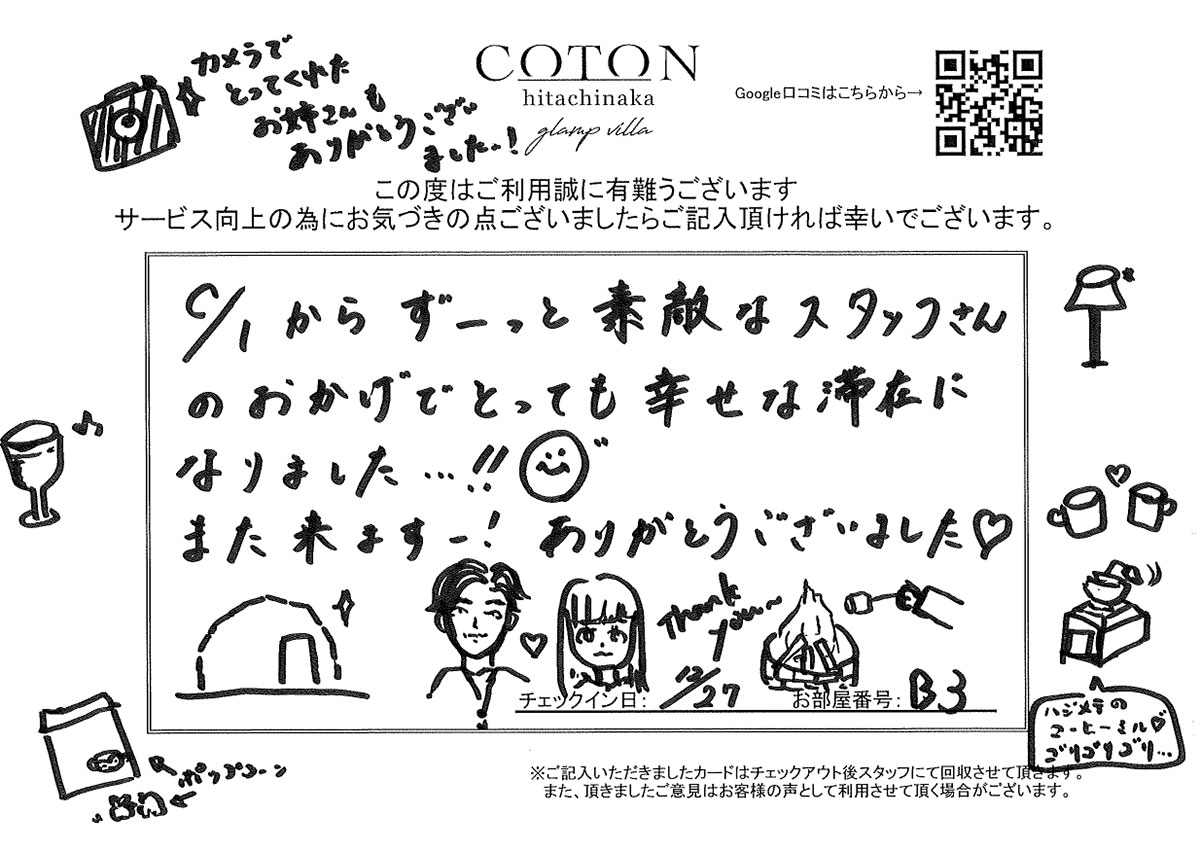 カメラで
とってくれた
お姉さんも
ありがとうござい
ました..!
COTON
hitachinaka
glamp villa
Google口コミはこちらから→
この度はご利用誠に有難うございます
サービス向上の為にお気づきの点ございましたらご記入頂ければ幸いでございます。
C/Iからずーっと素敵なスタッフさん
のおかげでとっても幸せな滞在に
なりました...!!
また来ますー! ありがとうございました♡
Thank
you~
チェックイン日: 12/27 お部屋番号: B3
ハジメテの
コーヒーミル♡
ゴリゴリゴリ...
ポップコーン
※ご記入いただきましたカードはチェックアウト後スタッフにて回収させて頂きます。
また、頂きましたご意見はお客様の声として利用させて頂く場合がございます。